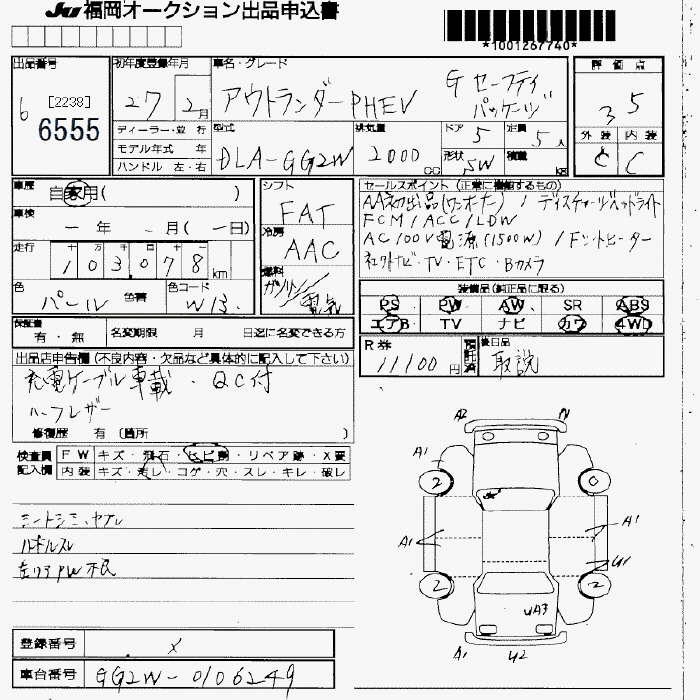 JU 福岡オークション出品申込書
*1001267740*
出品番号 初年度登録年月 車名・グレード 評価点
6 [2238] 6555 27 2月 アウトランダーPHEV G セーフティパッケージ 3.5
ディーラー・並行 型式 排気量 ドア 5 定員 5人 外装 内装
モデル年式 年 DLA-GG2W 2000cc 形状 SW 積載 kg C C
ハンドル 左・右
車歴 自家用( ) シフト FAT セールスポイント (正常に機能するもの)
AA初出品(ワンオーナー) / ディスチャージヘッドライト
車検 ー年 ー月(ー日) 冷房 AAC FCM / ACC / LDW
AC100V電源(1500W) / フロントヒーター
走行 十 万 千 百 十 一 103078km 燃料 ガソリン/電気 社外ナビ・TV・ETC・Bカメラ
色 パール 色替 色コード W13 装備品(純正品に限る)
PS PW AW SR ABS
エアB TV ナビ カワ 4WD
保証書 有・無 名変期限 月 日迄に名変できる方
R券 11100円 預託済 後日品 取説
出品店申告欄 (不良内容・欠品など具体的に記入して下さい)
充電ケーブル車載・QC付
ハーフレザー
修復歴 有 〔箇所 〕
検査員記入欄 FW キズ・飛石・ヒビ割・リペア跡・X要
内装 キズ・汚レ・コゲ・穴・スレ・キレ・破レ
シートシミ、ヤブレ
左リアPW不良
A2
A1
2 0
A1 A1
U1
2 2
UA3
A1 U2
登録番号 X
車台番号 GG2W-0106249